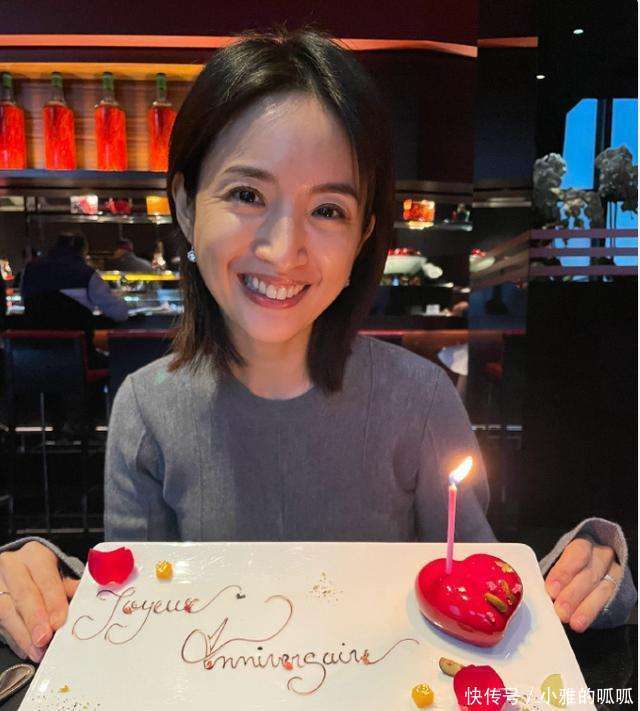 Joyeux
Anniversaire
快传号 / 小雅的呱呱